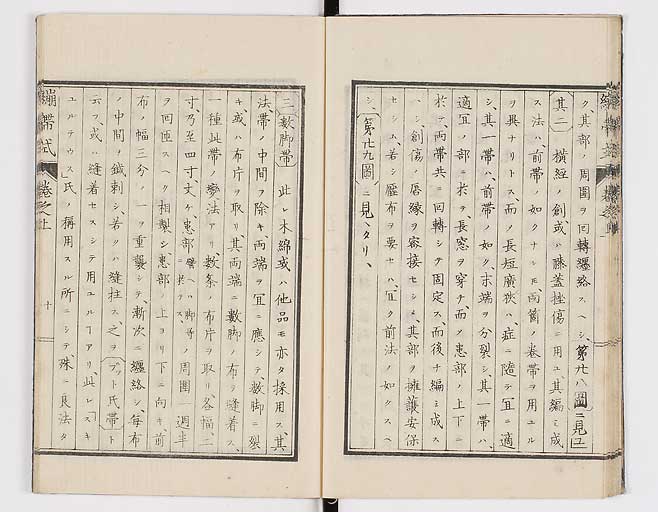 ク其部ノ周囲ヲ回轉纒絡スヘシ第廿八圖ニ見ユ
其二 横經ノ創或ハ膝蓋挫傷ニ用ユ其編ミ成
ス法ハ前帶ノ如クナシモ両箇ノ巻帶ヲ用ユル
ヲ異ナリトス、而ノ長短廣狹ハ症ニ隨テ冝ニ適
シ、其一帶ハ、前帶ノ如ク、末端ヲ分裂シ、其一帶ハ、
適冝ノ部ニ於テ、長窓ヲ穿チ、而ノ患部ノ上下ニ
於テ、両帶共ニ回轉シテ固定ス、而後チ編ミ成ス
ヘシ、創傷ノ唇縁ヲ密接セシメ、其部ヲ擁護安保
セシム、若シ壓布ヲ要セハ、冝ク前法ノ如クスヘ
シ、第廿九圖ニ見ヘタリ、
三 數脚帶 此レ木綿或ハ他品モ亦タ採用ス、其
法、帶ノ中間ヲ除キ、両端ヲ冝ニ應シテ數脚ニ裂
キ、或ハ布片ヲ取リ、其両端ニ數脚ノ布ヲ縫着ス、
一種此帶ノ變法アリ、數条ノ布片ヲ取リ、各幅、二
寸乃至四寸丈ケ患部 譬ヘハ脚等ニ於テス ノ周囲一週半
ヲ回匝スヘク相製シ、患部ノ上ヨリ下ニ向キ、前
布ノ幅三分ノ一ヲ重襲シテ、漸次ニ纒絡シ、毎布
ノ中間ノ鍼刺シ、若クハ縫拄ス之ヲプット氏帶ト
云フ、或ハ縫着セスシテ用ユルヿアリ、此レ「スキ
ユルテウス」氏ノ稱用スル所ニシテ、殊ニ良法タ
繃帶式 巻之上
十